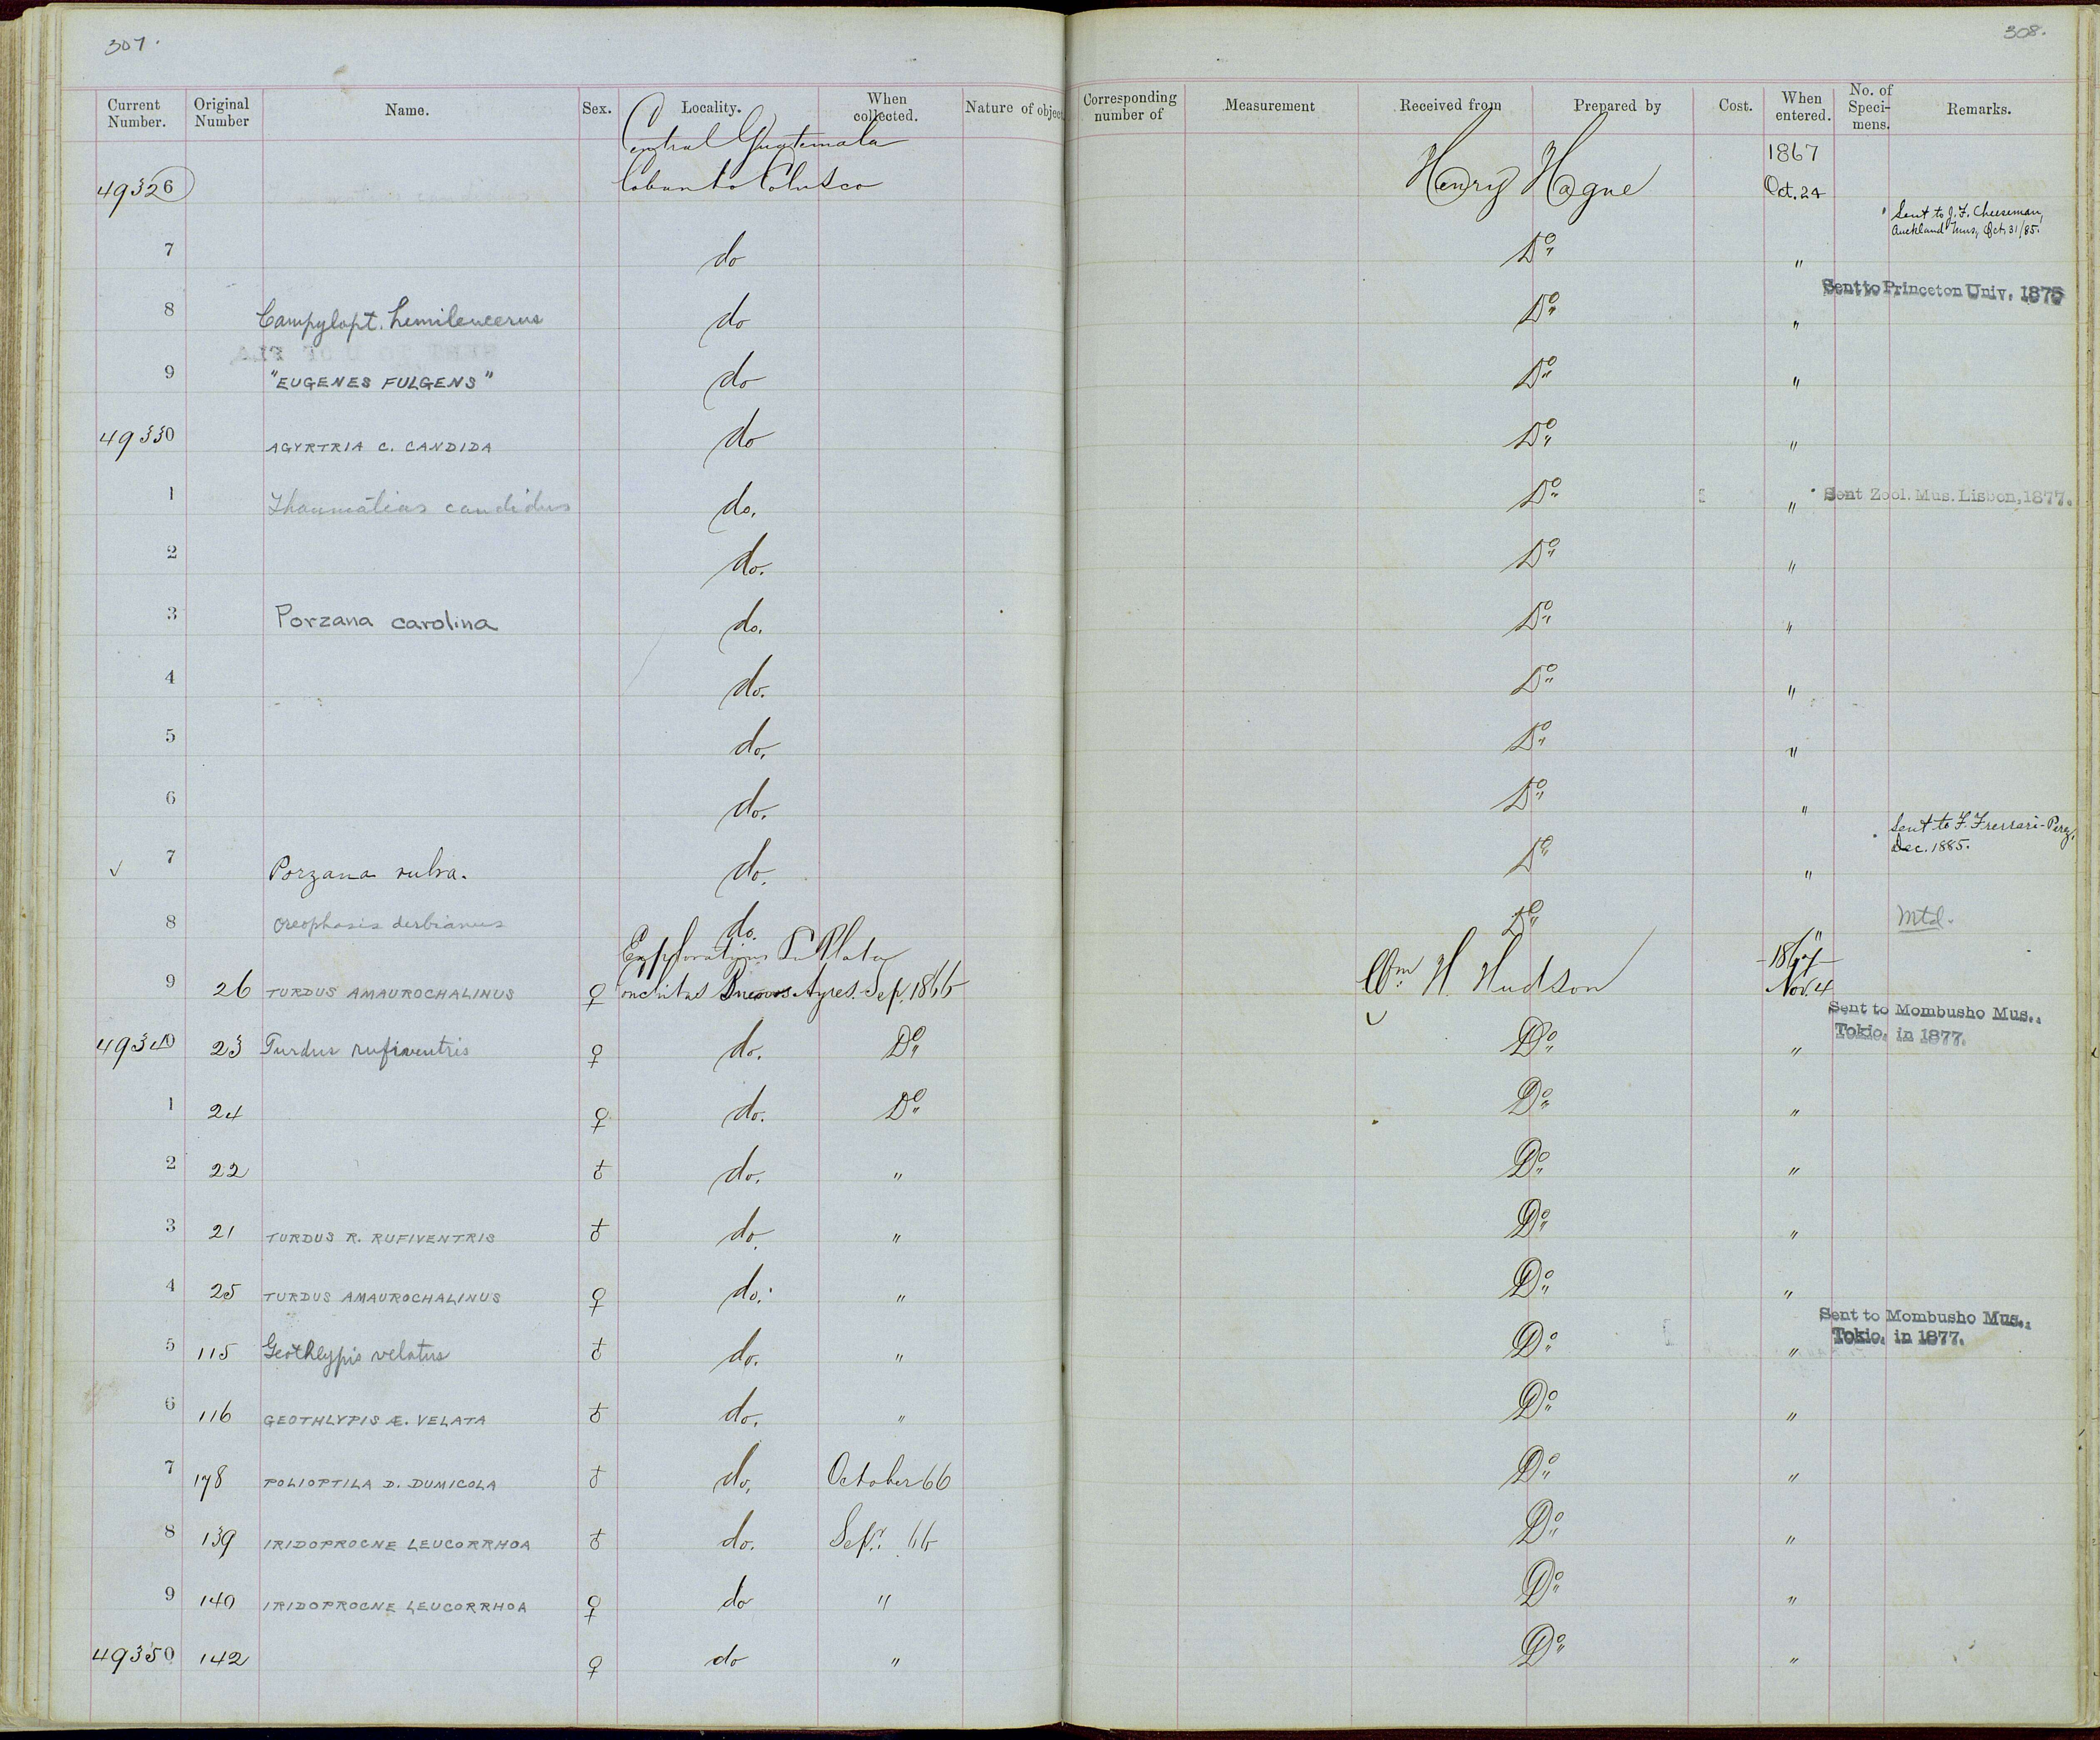 307.
308.
Current Number. Original Number Name. Sex. Locality. When collected. Nature of object Corresponding number of Measurement Received from Prepared by Cost. When entered. No. of Speci- mens. Remarks.
Central Guatemala 1867
49326 Henry Hague Oct. 24
Sent to J. F. Cheeseman,
Auckland Mus, Oct 31/85.
7 do Do "
Sent to Princeton Univ. 1875
8 Campylopt. hemileucerus do Do "
9 "EUGENES FULGENS" do Do "
49330 AGYRTRIA C. CANDIDA do Do "
1 Thaumatias candidus do. Do " Sent Zool. Mus. Lisbon, 1877.
2 do. Do "
3 Porzana carolina do. Do "
4 do. Do "
5 do. Do "
6 do. Do "
Sent to F. Ferrari-Perez,
Dec. 1885.
7 Porzana rubra. do. Do "
8 Oreophasis derbianus do. Do " Mtd.
Explorations La Plata 1867
9 26 TURDUS AMAUROCHALINUS ♀ Conchitas Buenos Ayres. Sep. 1866 Wm H. Hudson Nov. 4
Sent to Mombusho Mus.,
Tokio, in 1877.
49340 23 Turdus rufiventris ♀ do. Do Do "
1 24 ♀ do. Do Do "
2 22 ♂ do. " Do "
3 21 TURDUS R. RUFIVENTRIS ♂ do. " Do "
4 25 TURDUS AMAUROCHALINUS ♀ do. " Do "
Sent to Mombusho Mus.,
Tokio, in 1877.
5 115 Geothlypis velatus ♂ do. " Do "
6 116 GEOTHLYPIS Æ. VELATA ♂ do. " Do "
7 178 POLIOPTILA D. DUMICOLA ♂ do. October 66 Do "
8 139 IRIDOPROCNE LEUCORRHOA ♂ do. Sepr. 66 Do "
9 140 IRIDOPROCNE LEUCORRHOA ♀ do " Do "
49350 142 ♀ do " Do "